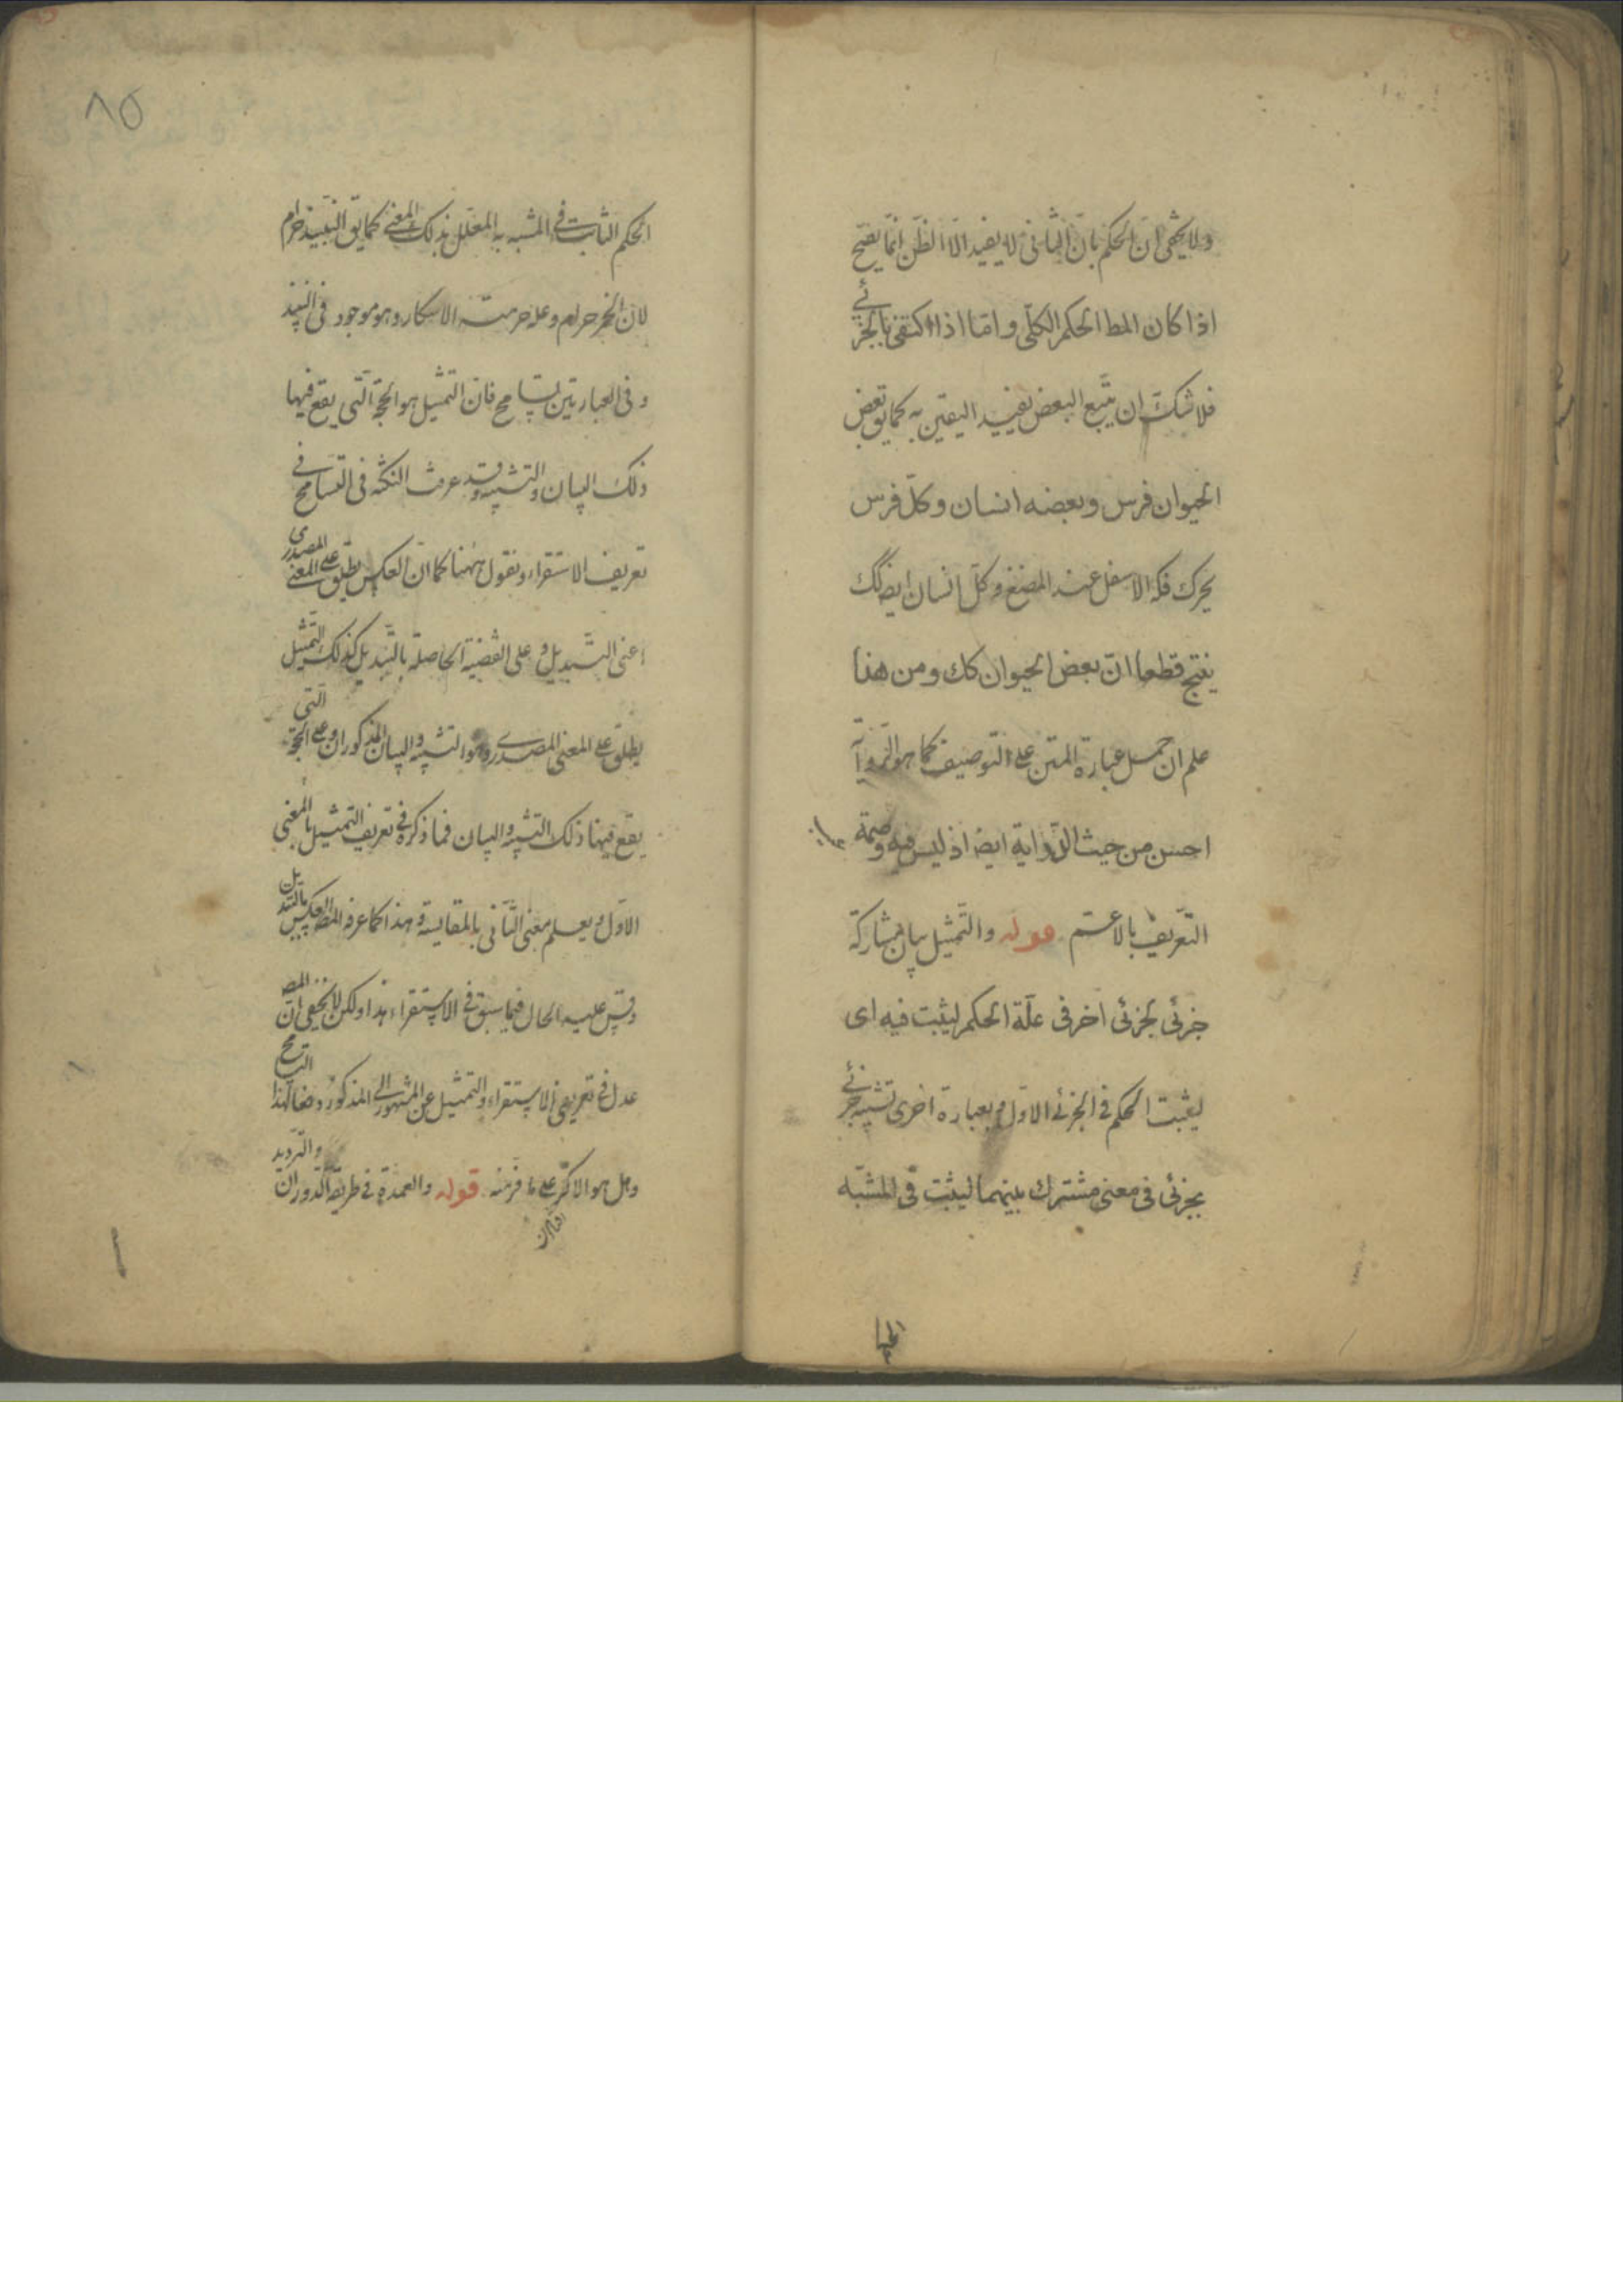 ولا يخفى ان الحكم بان الثانى لا يفيد الا الظن انما يصح
اذا كان المط الحكم الكلى واما اذا اكتفى بالجزئى
فلا شك ان تتبع البعض يفيد اليقين به كما يق بعض
الحيوان فرس وبعضه انسان وكل فرس
يحرك فكه الاسفل عند المضغ وكل انسان ايضا كك
ينتج قطعا ان بعض الحيوان كك ومن هذا
علم ان حمل عبارة المتن على التوصيف كما هو الرواية
احسن من حيث الدراية ايضا اذ ليس فيه وصمة
التعريف بالاعم قوله والتمثيل بيان مشاركة
جزئى لجزئى اخر فى علة الحكم ليثبت فيه اى
ليثبت الحكم فى الجزئى الاول وبعبارة اخرى تشبيه جزئى
بجزئى فى معنى مشترك بينهما ليثبت فى المشبه
٨٥
الحكم الثابت فى المشبه به المعلل بذلك المعنى كما يق النبيذ حرام
لان الخمر حرام وعلة حرمته الاسكار وهو موجود فى النبيذ
وفى العبارتين تسامح فان التمثيل هو الحجة التى يقع فيها
ذلك البيان والتشبيه وقد عرفت النكتة فى التسامح فى
تعريف الاستقراء ونقول ههنا كما ان العكس يطلق على المعنى المصدرى
اعنى التبديل وعلى القضية الحاصلة بالتبديل كذلك التمثيل
يطلق على المعنى المصدرى وهو التشبيه والبيان المذكوران وعلى الحجة التى
يقع فيها ذلك التشبيه والبيان فما ذكره فى تعريف التمثيل بالمعنى
الاول ويعلم معنى الثانى بالمقايسة وهذا كما عرف المصه العكس بالتبديل
وقس عليه الحال فيما سبق فى الاستقراء هذا ولكن لا يخفى ان المصه
عدل فى تعريفى الاستقراء والتمثيل عن المشهور الى المذكور دفعا لهذا التسامح
وهل هو الا كر على ما فر منه قوله والعمدة فى طريقه الدوران والترديد